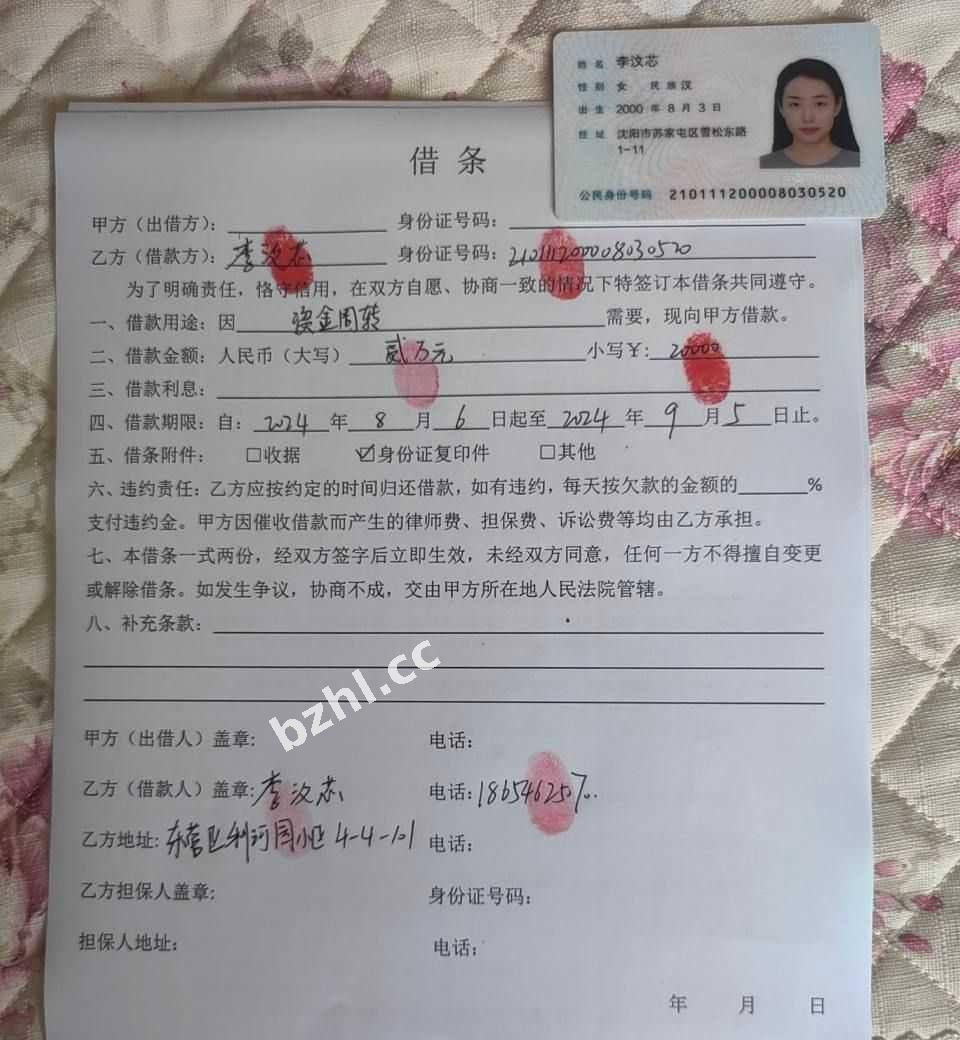 姓名 李汶芯
性别 女 民族 汉
出生 2000 年 8 月 3 日
住址 沈阳市苏家屯区雪松东路
1-11
公民身份号码 210111200008030520
借条
甲方（出借方）： 身份证号码：
乙方（借款方）：李汶芯 身份证号码：210111200008030520
为了明确责任，恪守信用，在双方自愿、协商一致的情况下特签订本借条共同遵守。
一、借款用途：因 资金周转 需要，现向甲方借款。
二、借款金额：人民币（大写） 贰万元 小写￥: 20000
三、借款利息：
四、借款期限：自：2024 年 8 月 6 日起至 2024 年 9 月 5 日止。
五、借条附件： □收据 ☑身份证复印件 □其他
六、违约责任：乙方应按约定的时间归还借款，如有违约，每天按欠款的金额的 %
支付违约金。甲方因催收借款而产生的律师费、担保费、诉讼费等均由乙方承担。
七、本借条一式两份，经双方签字后立即生效，未经双方同意，任何一方不得擅自变更
或解除借条。如发生争议，协商不成，交由甲方所在地人民法院管辖。
八、补充条款：
bzhl.cc
甲方（出借人）盖章: 电话：
乙方（借款人）盖章:李汶芯 电话:
乙方地址: 东营区利河园小区 4-4-101 电话：
乙方担保人盖章: 身份证号码：
担保人地址: 电话：
年 月 日